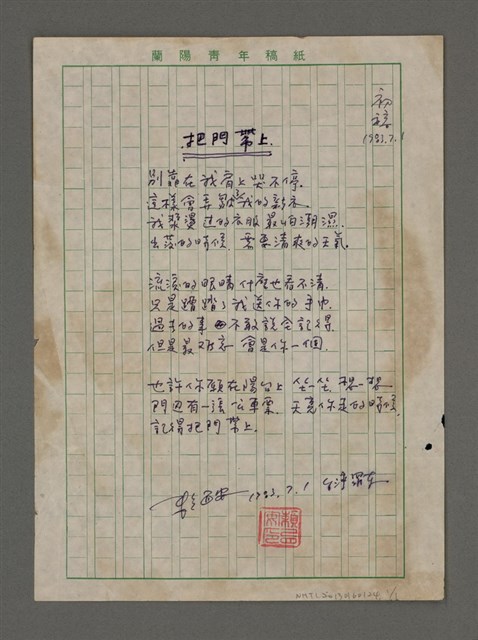 蘭陽青年稿紙
初稿
1983.7.1
把門帶上
別靠在我肩上哭不停.
這樣會弄皺我的新衣.
我漿燙過的衣服最怕潮濕.
出發的時候 需要清爽的天氣.
流淚的眼睛什麼也看不清.
只是蹧蹋了我送你的手巾
過去的事 不敢說全記得
但是最難忘 會是你一個.
也許你願在陽台上 坐一坐 想一想
門邊有一張公車票. 天亮你走的時候
記得把門帶上.
1983.7.1 羅東